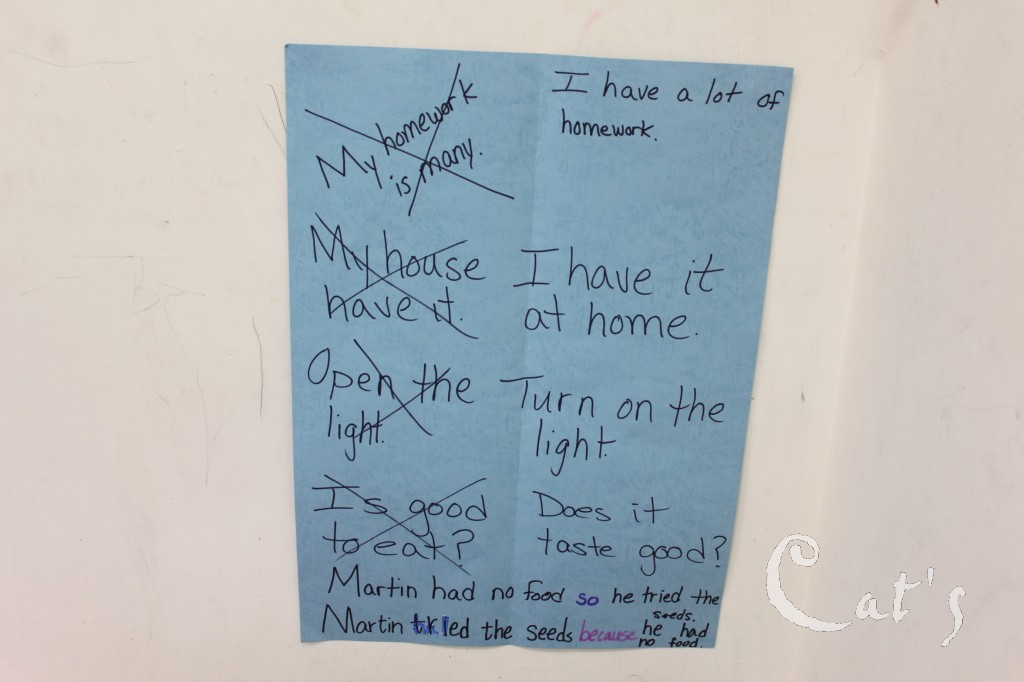 My homework
is many.
I have a lot of
homework.
My house
have it.
I have it
at home.
Open the
light.
Turn on the
light.
Is good
to eat?
Does it
taste good?
Martin had no food so he tried the
seeds.
Martin tried the seeds because he had
no food.
Cat's